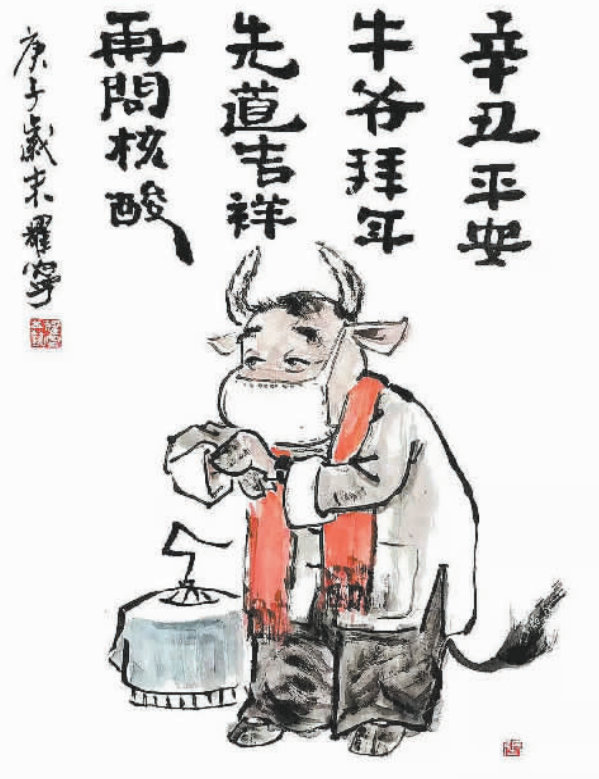 辛丑平安
牛爷拜年
先道吉祥
再問核酸
庚子歲末耀寧